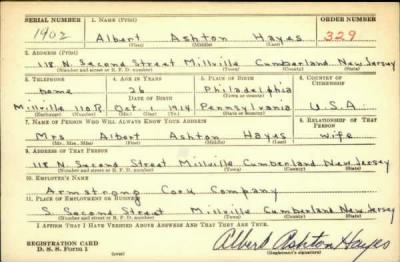 SERIAL NUMBER 1. NAME (Print) ORDER NUMBER
1902 Albert Ashton Hayes 329
(First) (Middle) (Last)
2. ADDRESS (Print)
118 N. Second Street Millville Cumberland New Jersey
(Number and street or R. F. D. number) (Town) (County) (State)
3. TELEPHONE 4. AGE IN YEARS 5. PLACE OF BIRTH 6. COUNTRY OF CITIZENSHIP
home 26 Philadelphia
DATE OF BIRTH
Millville 110R Oct. 1 1914 Pennsylvania U.S.A.
(Exchange) (Number) (Mo.) (Day) (Yr.) (State or country)
7. NAME OF PERSON WHO WILL ALWAYS KNOW YOUR ADDRESS 8. RELATIONSHIP OF THAT PERSON
Mrs Albert Ashton Hayes wife
(Mr., Mrs., Miss) (First) (Middle) (Last)
9. ADDRESS OF THAT PERSON
118 N. Second Street Millville Cumberland New Jersey
(Number and street or R. F. D. number) (Town) (County) (State)
10. EMPLOYER'S NAME
Armstrong Cork Company
11. PLACE OF EMPLOYMENT OR BUSINESS
S. Second Street Millville Cumberland New Jersey
(Number and street or R. F. D. number) (Town) (County) (State)
I AFFIRM THAT I HAVE VERIFIED ABOVE ANSWERS AND THAT THEY ARE TRUE.
REGISTRATION CARD
D. S. S. Form 1 (over) Albert Ashton Hayes
(Registrant's signature)